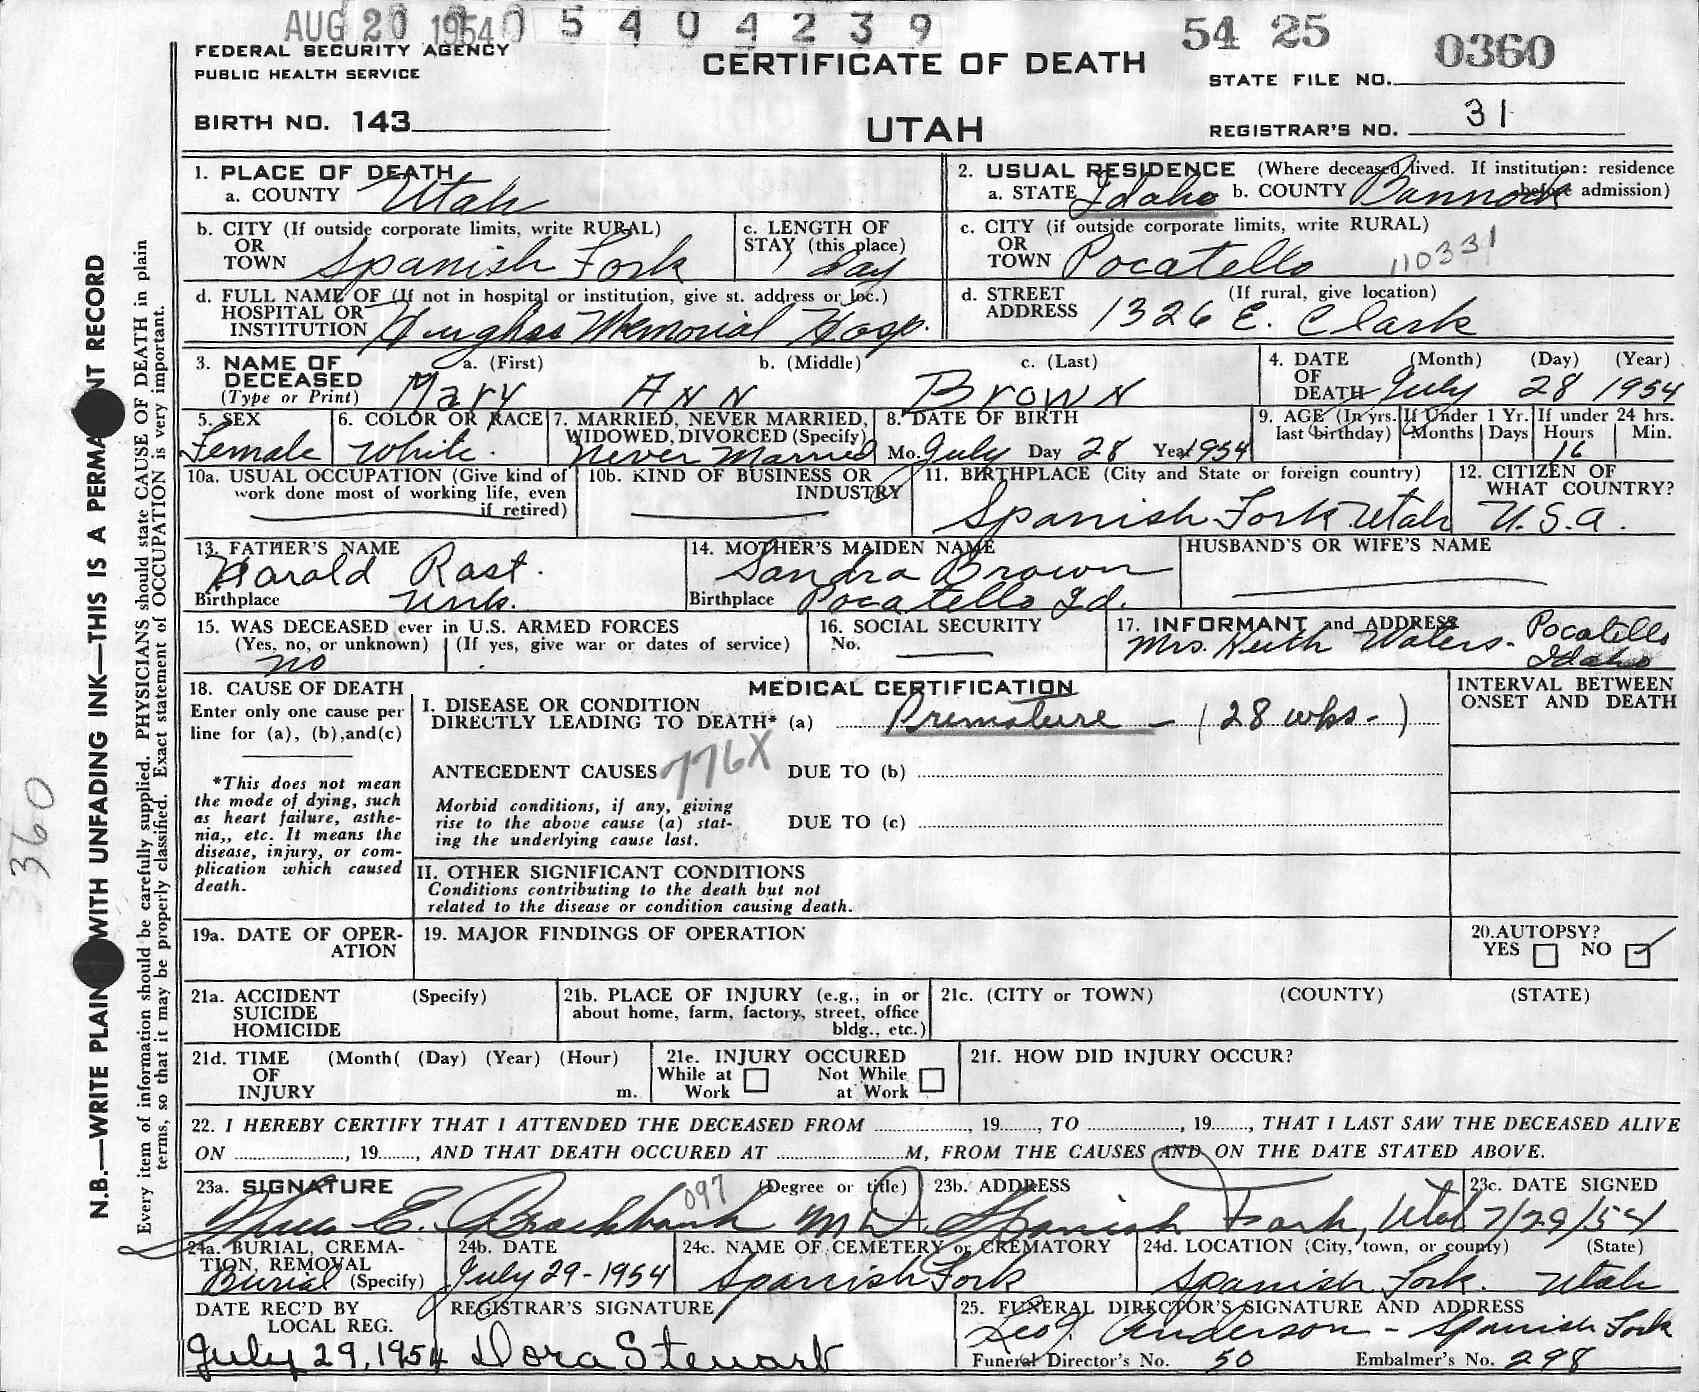 AUG 20 1954 0 5 4 0 4 2 3 9
54 25
0360
FEDERAL SECURITY AGENCY
PUBLIC HEALTH SERVICE
CERTIFICATE OF DEATH
STATE FILE NO.
BIRTH NO. 143
UTAH
REGISTRAR'S NO. 31
1. PLACE OF DEATH
a. COUNTY Utah
2. USUAL RESIDENCE (Where deceased lived. If institution: residence
a. STATE Idaho b. COUNTY Bannock before admission)
b. CITY (If outside corporate limits, write RURAL)
OR
TOWN Spanish Fork
c. LENGTH OF
STAY (this place)
1 day
c. CITY (if outside corporate limits, write RURAL)
OR
TOWN Pocatello 110331
d. FULL NAME OF (If not in hospital or institution, give st. address or loc.)
HOSPITAL OR
INSTITUTION Hughes Memorial Hosp.
d. STREET (If rural, give location)
ADDRESS 1326 E. Clark
3. NAME OF a. (First) b. (Middle) c. (Last)
DECEASED
(Type or Print) Mary Ann Brown
4. DATE (Month) (Day) (Year)
OF
DEATH July 28 1954
5. SEX
Female
6. COLOR OR RACE
White
7. MARRIED, NEVER MARRIED,
WIDOWED, DIVORCED (Specify)
Never Married
8. DATE OF BIRTH
Mo. July Day 28 Year 1954
9. AGE (In yrs. last birthday)
If Under 1 Yr.
Months Days
If under 24 hrs.
Hours Min.
16
10a. USUAL OCCUPATION (Give kind of
work done most of working life, even
if retired)
10b. KIND OF BUSINESS OR
INDUSTRY
11. BIRTHPLACE (City and State or foreign country)
Spanish Fork Utah
12. CITIZEN OF
WHAT COUNTRY?
U.S.A.
13. FATHER'S NAME
Harold Rast.
Birthplace Unk.
14. MOTHER'S MAIDEN NAME
Sandra Brown
Birthplace Pocatello Id.
HUSBAND'S OR WIFE'S NAME
15. WAS DECEASED ever in U.S. ARMED FORCES
(Yes, no, or unknown) (If yes, give war or dates of service)
no
16. SOCIAL SECURITY
No.
17. INFORMANT and ADDRESS
Mrs. Keith Waters - Pocatello
Idaho
18. CAUSE OF DEATH
Enter only one cause per
line for (a), (b), and (c)
*This does not mean
the mode of dying, such
as heart failure, asthe-
nia,, etc. It means the
disease, injury, or com-
plication which caused
death.
MEDICAL CERTIFICATION
I. DISEASE OR CONDITION
DIRECTLY LEADING TO DEATH* (a) Premature - (28 wks.)
ANTECEDENT CAUSES 776X DUE TO (b)
Morbid conditions, if any, giving
rise to the above cause (a) stat-
ing the underlying cause last.
DUE TO (c)
II. OTHER SIGNIFICANT CONDITIONS
Conditions contributing to the death but not
related to the disease or condition causing death.
INTERVAL BETWEEN
ONSET AND DEATH
19a. DATE OF OPER-
ATION
19. MAJOR FINDINGS OF OPERATION
20. AUTOPSY?
YES NO
21a. ACCIDENT (Specify)
SUICIDE
HOMICIDE
21b. PLACE OF INJURY (e.g., in or
about home, farm, factory, street, office
bldg., etc.)
21c. (CITY or TOWN) (COUNTY) (STATE)
21d. TIME (Month( (Day) (Year) (Hour)
OF
INJURY m.
21e. INJURY OCCURED
While at Not While
Work at Work
21f. HOW DID INJURY OCCUR?
22. I HEREBY CERTIFY THAT I ATTENDED THE DECEASED FROM ............, 19......, TO ............, 19......, THAT I LAST SAW THE DECEASED ALIVE
ON ............, 19......, AND THAT DEATH OCCURED AT ............M, FROM THE CAUSES AND ON THE DATE STATED ABOVE.
23a. SIGNATURE 097 (Degree or title)
E. Brockbank M.D.
23b. ADDRESS
Spanish Fork, Utah
23c. DATE SIGNED
7/29/54
24a. BURIAL, CREMA-
TION, REMOVAL
Burial (Specify)
24b. DATE
July 29-1954
24c. NAME OF CEMETERY or CREMATORY
Spanish Fork
24d. LOCATION (City, town, or county) (State)
Spanish Fork. Utah
DATE REC'D BY
LOCAL REG.
July 29, 1954
REGISTRAR'S SIGNATURE
Dora Stewart
25. FUNERAL DIRECTOR'S SIGNATURE AND ADDRESS
Leo J. Anderson - Spanish Fork
Funeral Director's No. 50 Embalmer's No. 298
N.B.—WRITE PLAIN WITH UNFADING INK—THIS IS A PERMANT RECORD
Every item of information should be carefully supplied. PHYSICIANS should state CAUSE OF DEATH in plain
terms, so that it may be properly classified. Exact statement of OCCUPATION is very important.
3360